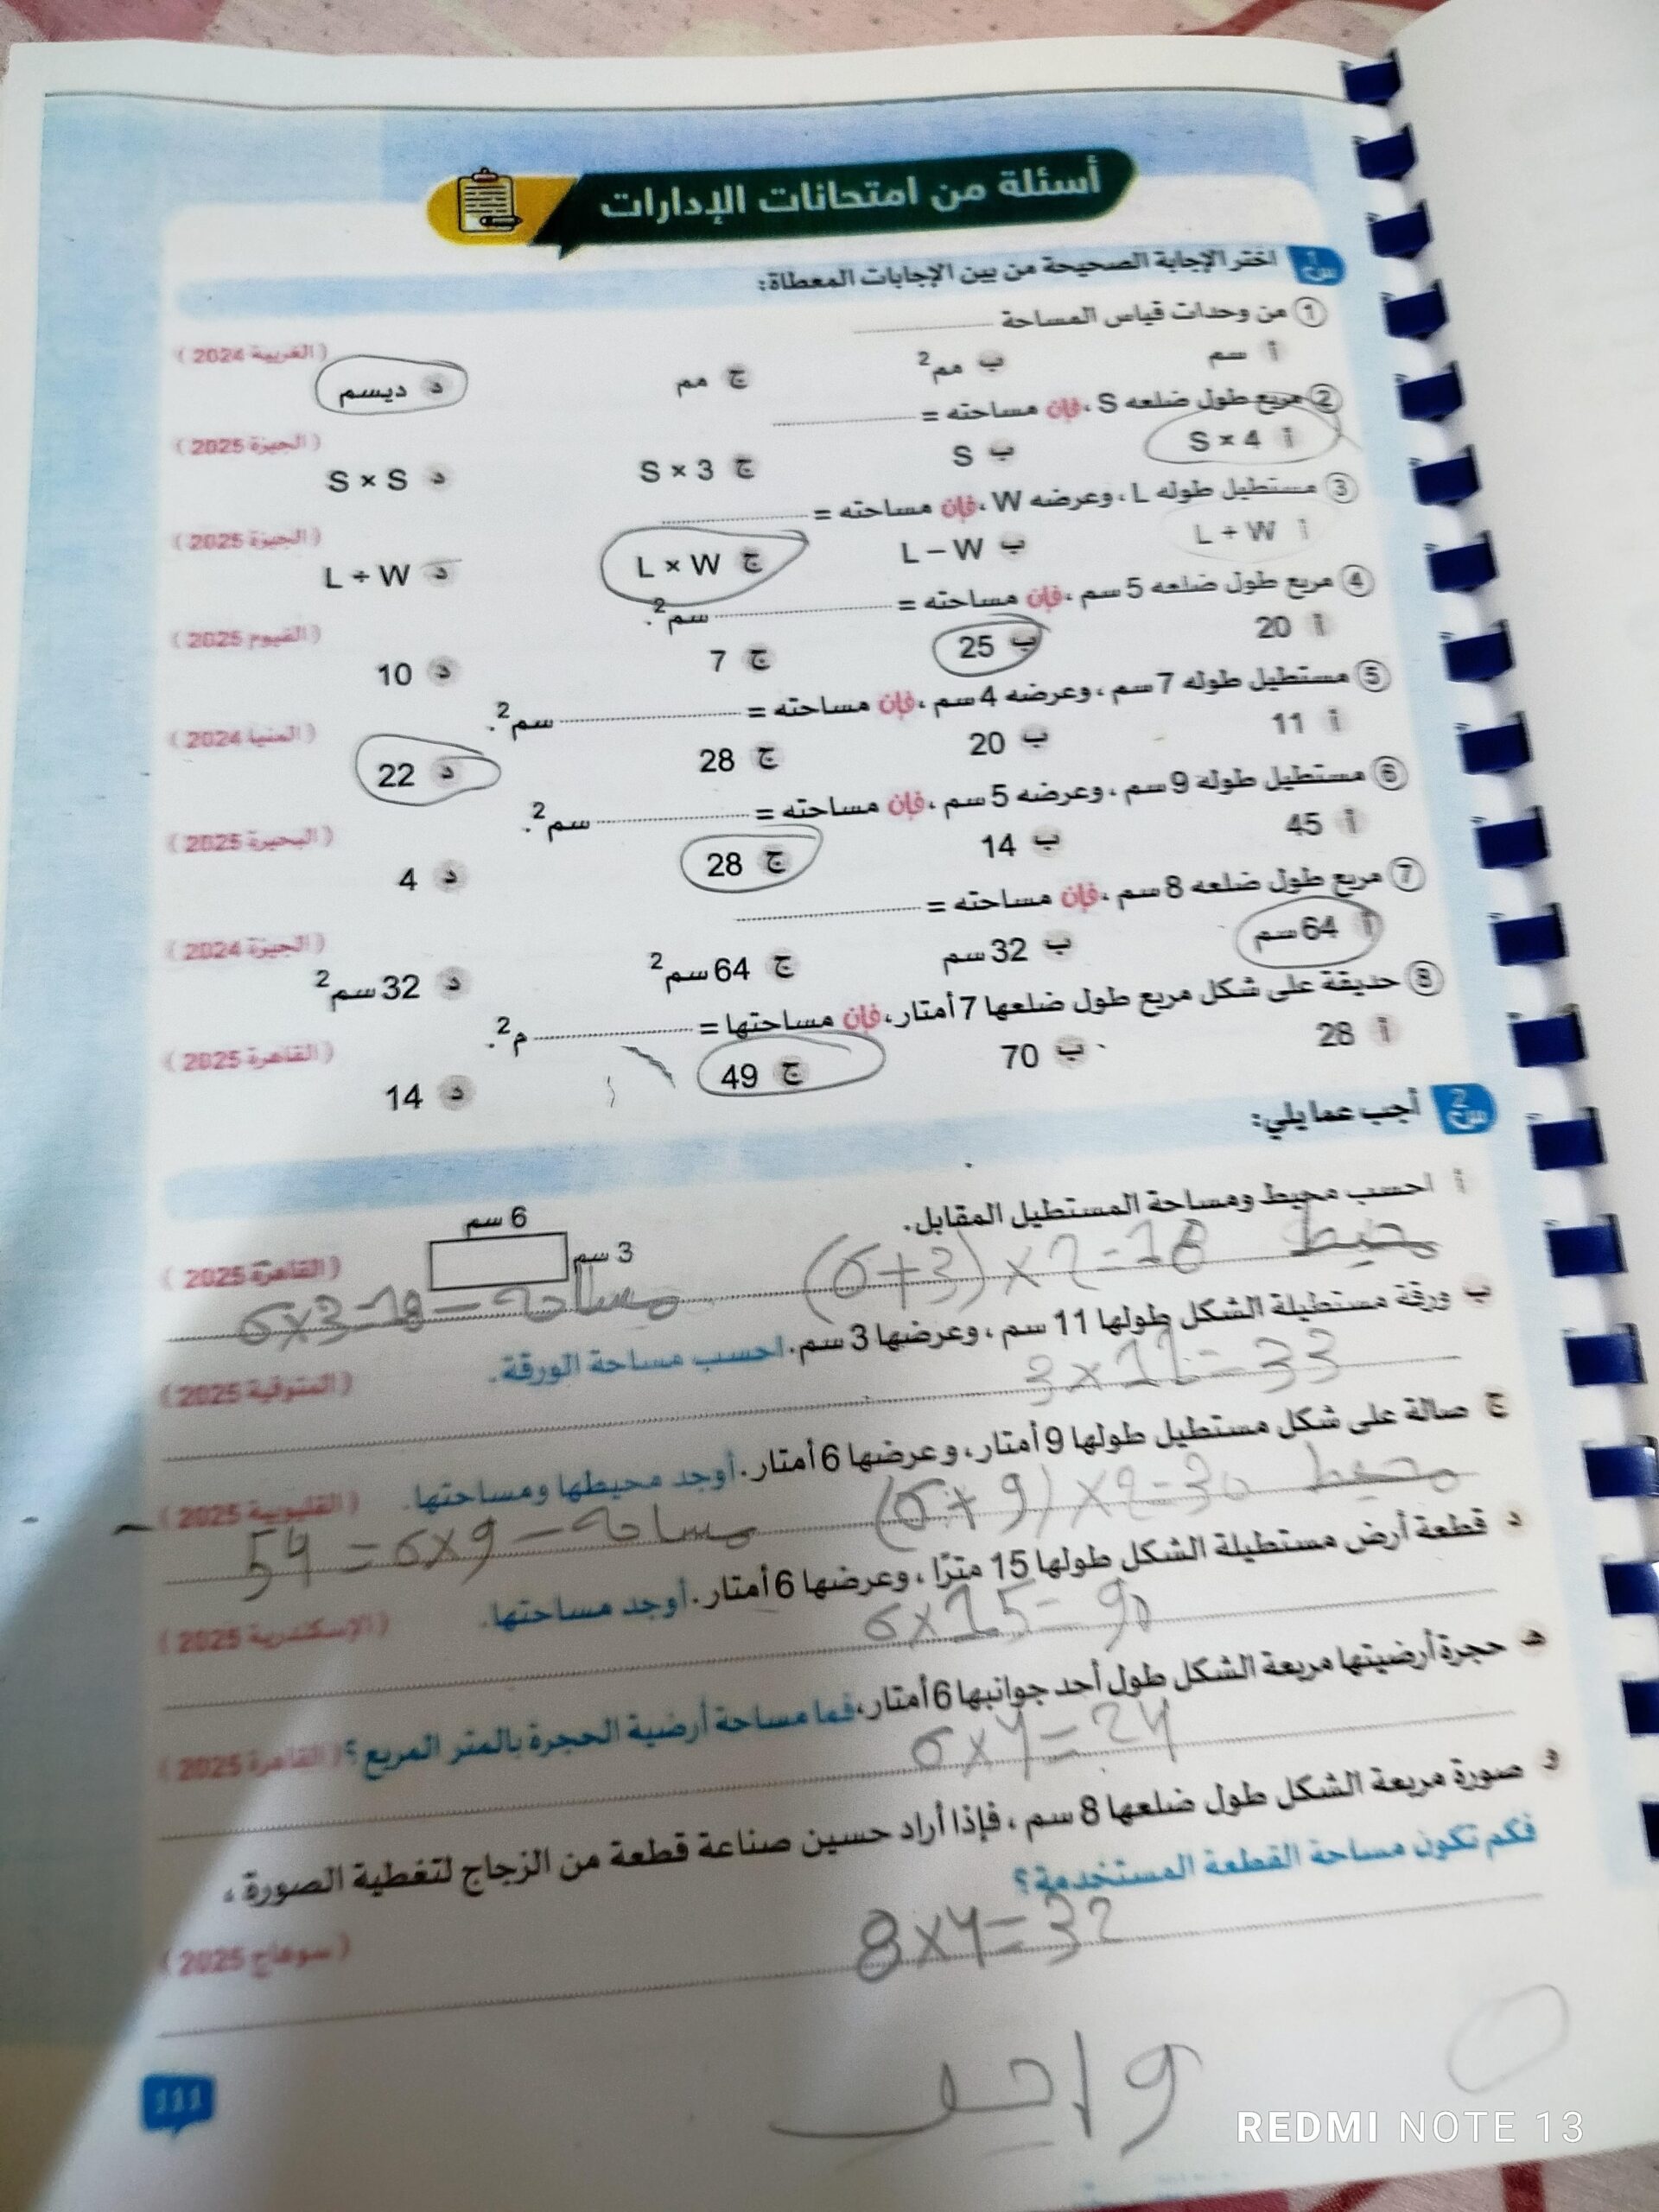 أسئلة من امتحانات الإدارات
س1 اختر الإجابة الصحيحة من بين الإجابات المعطاة:
1 من وحدات قياس المساحة ............ (الغربية 2024)
أ سم ب مم2 ج مم د ديسم
2 مربع طول ضلعه S، فإن مساحته = ............ (الجيزة 2025)
أ S × 4 ب S ج S × 3 د S × S
3 مستطيل طوله L، وعرضه W، فإن مساحته = ............ (الجيزة 2025)
أ L + W ب L − W ج L × W د L ÷ W
4 مربع طول ضلعه 5 سم، فإن مساحته = ............ سم2. (الفيوم 2025)
أ 20 ب 25 ج 7 د 10
5 مستطيل طوله 7 سم، وعرضه 4 سم، فإن مساحته = ............ سم2. (المنيا 2024)
أ 11 ب 20 ج 28 د 22
6 مستطيل طوله 9 سم، وعرضه 5 سم، فإن مساحته = ............ سم2. (البحيرة 2025)
أ 45 ب 14 ج 28 د 4
7 مربع طول ضلعه 8 سم، فإن مساحته = ............ (الجيزة 2024)
أ 64 سم ب 32 سم ج 64 سم2 د 32 سم2
8 حديقة على شكل مربع طول ضلعها 7 أمتار، فإن مساحتها = ............ م2. (القاهرة 2025)
أ 28 ب 70 ج 49 د 14
س2 أجب عما يلي:
أ احسب محيط ومساحة المستطيل المقابل. (القاهرة 2025)
6 سم
3 سم
محيط (6+3)×2=18
مساحة - 6×3=18
ب ورقة مستطيلة الشكل طولها 11 سم، وعرضها 3 سم. احسب مساحة الورقة. (المنوفية 2025)
3×11=33
ج صالة على شكل مستطيل طولها 9 أمتار، وعرضها 6 أمتار. أوجد محيطها ومساحتها. (القليوبية 2025)
محيط (6+9)×2=30
مساحة - 6×9=54
د قطعة أرض مستطيلة الشكل طولها 15 مترًا، وعرضها 6 أمتار. أوجد مساحتها. (الإسكندرية 2025)
6×15=90
هـ حجرة أرضيتها مربعة الشكل طول أحد جوانبها 6 أمتار، فما مساحة أرضية الحجرة بالمتر المربع؟ (القاهرة 2025)
6×4=24
و صورة مربعة الشكل طول ضلعها 8 سم، فإذا أراد حسين صناعة قطعة من الزجاج لتغطية الصورة،
فكم تكون مساحة القطعة المستخدمة؟ (سوهاج 2025)
8×4=32
واجد
111
REDMI NOTE 13